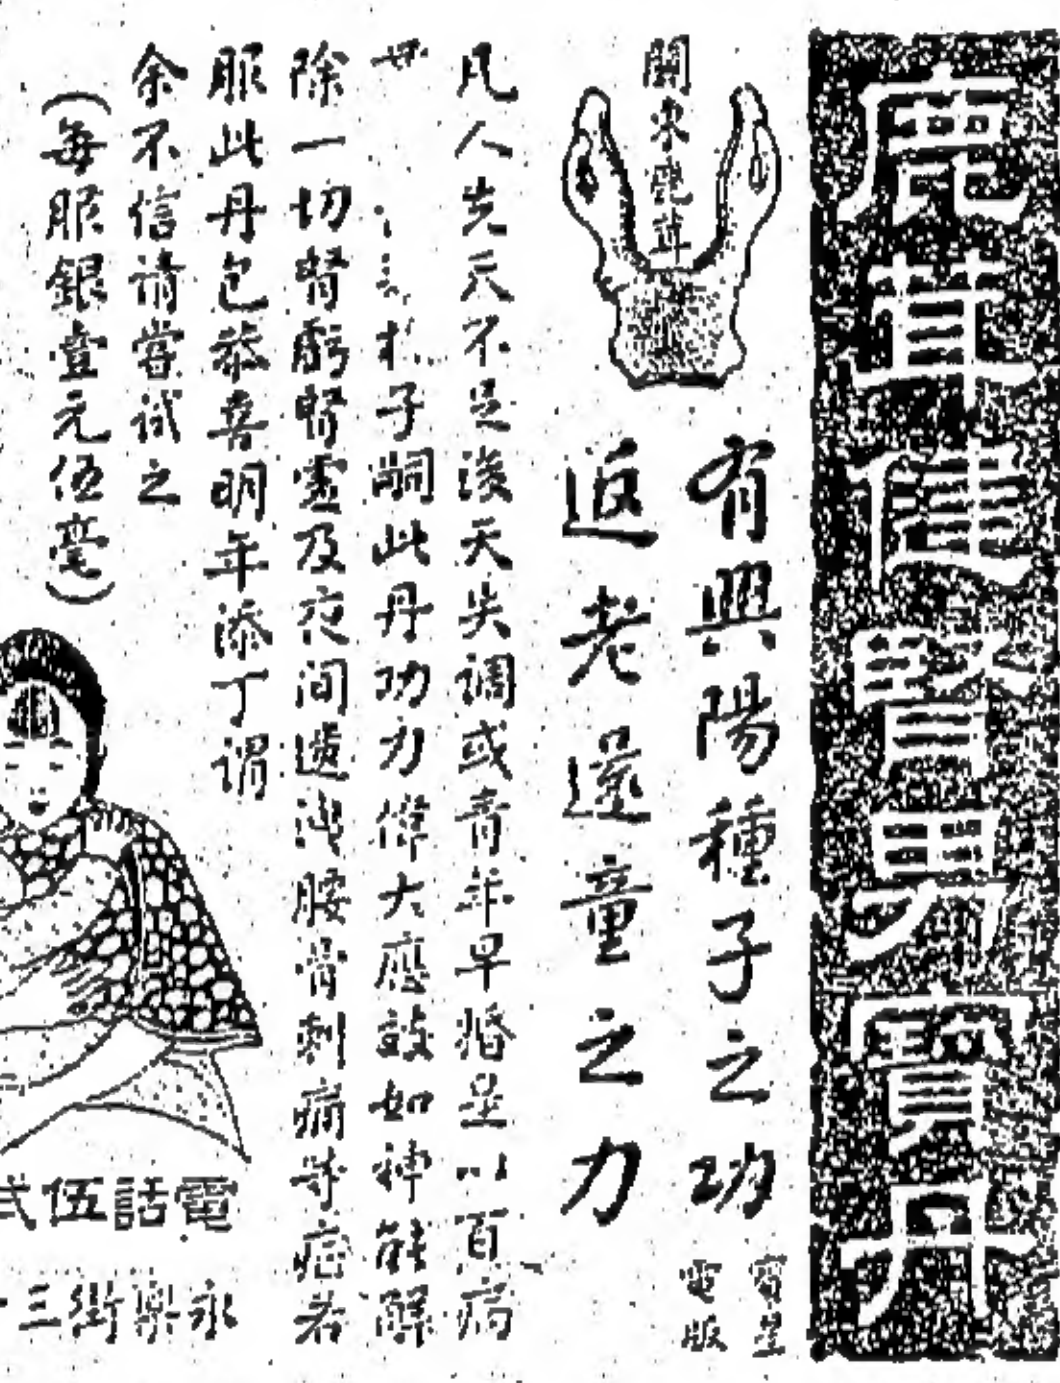 鹿茸健腎男寶丹
開來鹿茸
有興陽種子之功
返老還童之力
凡人先天不足後天失调或青年早婚是以百病
子嗣此丹功力偉大應效如神能解
除一切腎虧腎虛及夜间遺洩腰骨刺痛等症若
服此丹包恭喜明年添丁谓
余不信请嘗试之
(每服銀壹元伍毫)
電話伍式
永樂街三十